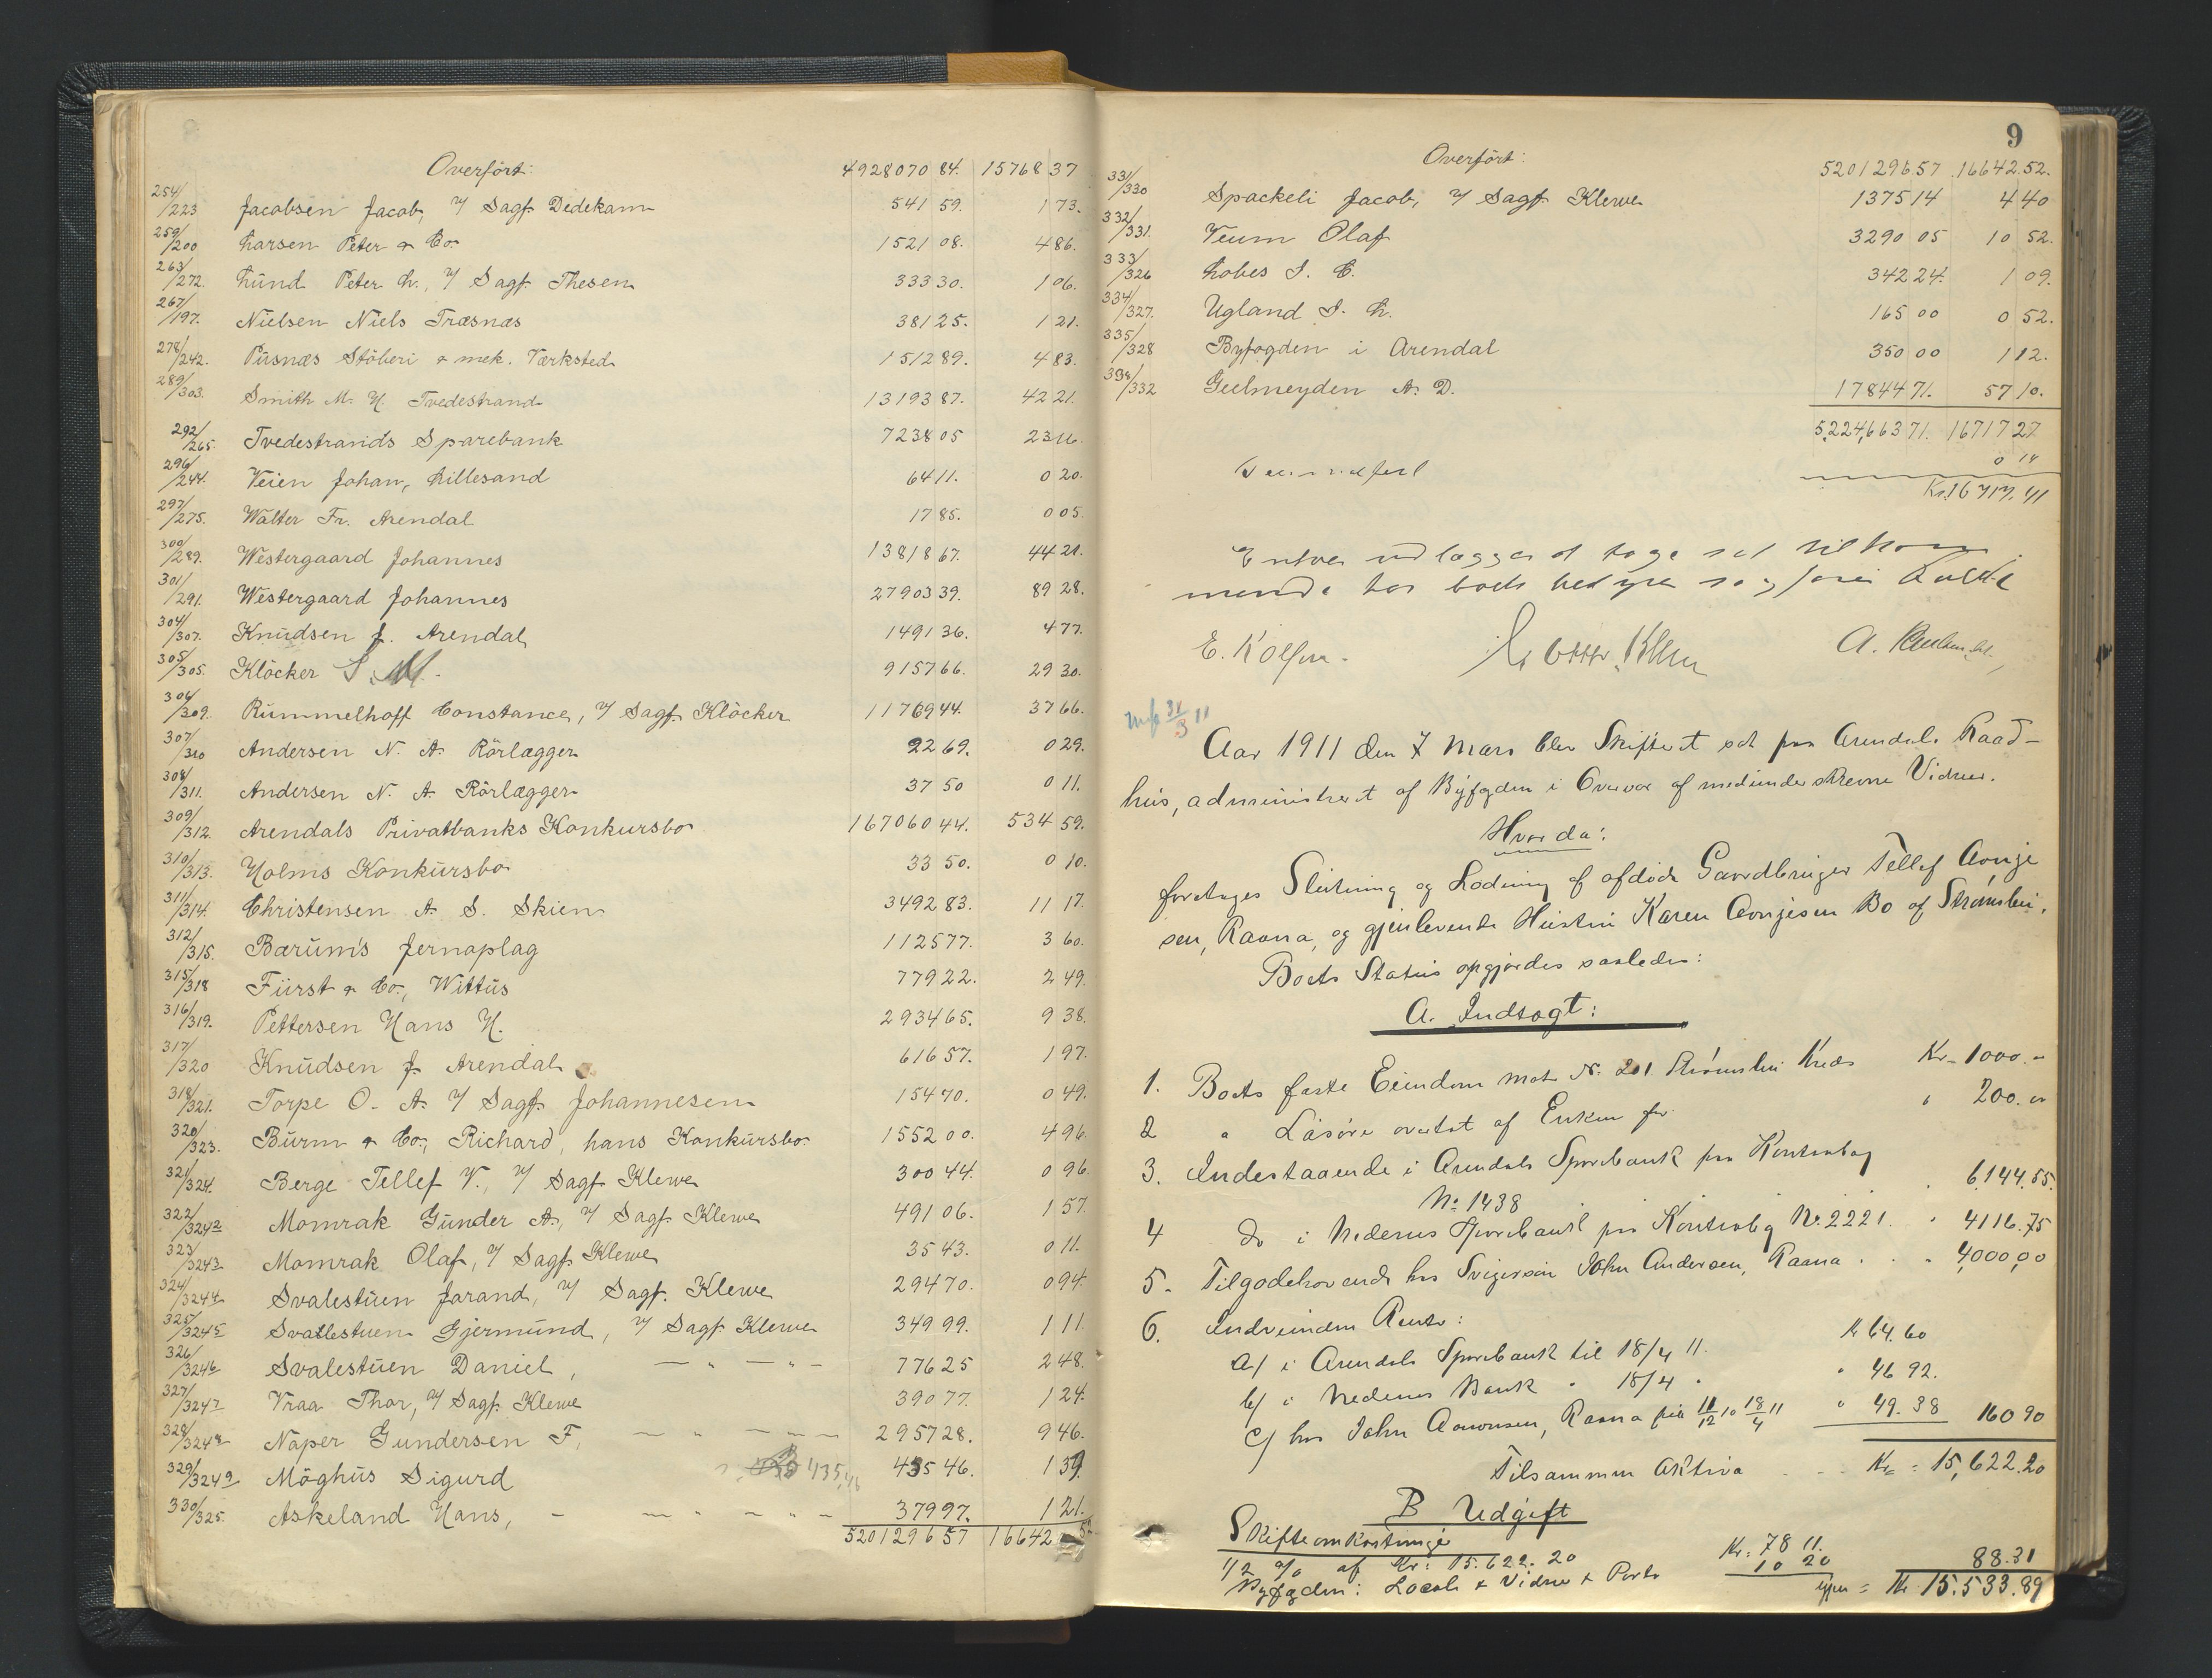 Overført: 4928070 84. 15768 37
254/223 Jacobsen Jacob, v/ Sagf. Dedekam 541 59. 1 73.
259/200 Larsen Peter & Co. 1521 08. 4 86.
263/272. Lund Peter L., v/ Sagf. Thesen 333 30. 1 06.
267/197. Nielsen Niels Træsnæs 381 25. 1 21.
278/242. Pusnæs Stöberi & mek. Værksted 1512 89. 4 83.
289/303. Smith M. H. Tvedestrand 13193 87. 42 21.
292/265. Tvedestrands Sparebank 7238 05 23 16.
296/244. Veien Johan, Lillesand 64 11. 0 20.
297/275. Walter Fr. Arendal 17 85. 0 05.
300/289. Westergaard Johannes 13818 67. 44 21.
301/291. Westergaard Johannes 27903 39. 89 28.
304/307. Knudsen J. Arendal 1491 36. 4 77.
305/305. Klöcker S. M. 9157 66. 29 30.
306/309. Rummelhoff Constance, v/ Sagf. Klöcker 11769 44. 37 66.
307/310 Andersen N. A. Rörlægger 92 69. 0 29.
308/311. Andersen N. A. Rörlægger 37 50 0 11.
309/312. Arendals Privatbanks Konkursbo 167060 44. 534 59.
310/313. Holms Konkursbo 33 50. 0 10.
311/314. Christensen A. S. Skien 3492 83. 11 17.
312/315. Bærums Jernoplag 1125 77. 3 60.
315/318 Fürst & Co., Wittus 779 22. 2 49.
316/319. Pettersen Hans H. 2934 65. 9 38.
317/320 Knudsen J. Arendal 616 57. 1 97.
318/321. Torpe O. A. v/ Sagf. Johannesen 154 70. 0 49.
320/323. Burm & Co., Richard, hans Konkursbo 1552 00. 4 96.
321/324. Berge Tellef V., v/ Sagf. Klewe 300 44. 0 96.
322/324 2 Momrak Gunder A., v/ Sagf. Klewe 491 06. 1 57.
323/324 3 Momrak Olaf, v/ Sagf. Klewe 35 43. 0 11.
324/324 4 Svalestuen Jarand, v/ Sagf. Klewe 294 70. 0 94.
325/324 5 Svalestuen Gjermund, v/ Sagf. Klewe 349 99. 1 11.
326/324 6 Svalestuen Daniel, — " — " — 776 25 2 48.
327/324 7 Vraa Thor, v/ Sagf. Klewe 390 77. 1 24.
328/324 8 Naper Gundersen F, — " — " — 2957 28. 9 46.
329/324 9 Möghus Sigurd 435,46 435 46. 1 39.
330/325. Askeland Hans, — " — " — 379 97. 1 21.
5201296 57 16642 52
9
Overført: 5201296.57 16642.52.
331/330 Spackeli Jacob, v/ Sagf. Klewe 1375 14 4 40
332/331. Veum Olaf 3290 05 10 52.
333/326 Lobes I. C. 342 24. 1 09.
334/327. Ugland I. L. 165 00 0 52.
335/328 Byfogden i Arendal 350 00 1 12.
398/332 Geelmeyden A. D. 17844 71. 57 10.
5,224,663 71. 16717 27
0 14
Kr. 16717.41
Enhver udlægges at tage sit tilkom
mende
E. Kolfsen.
31/3 11
Aar 1911 den 7 Mars blev Skifteret sat paa Arendals Raad-
hus, administreret af Byfogden i Overvær af medunderskrevne Vidner.
Hvorda:
foretages Slutning og Lodning af afdöde Gaardbruger Tellef Aanje
sen, Raana, og gjenlevende Hustru Karen Aanjesens Bo af Strømsbu.
Boets Status opgjordes saaledes:
A. Indtægt:
1. Boets faste Eiendom mat. N. 201 Strømsbu Kreds Kr. 1000.-
2 " Løsøre overtat af Enken for " 200.-
3. Indestaaende i Arendals Sparebank paa Kontrabog
No. 1438 " 6,144.55.
4 do i Nedenes Sparebank paa Kontrabog No. 2221. " 4116.75
5. Tilgodehavende hos Svigersøn John Andersen, Raana . . " 4,000,00
6. Indvundne Renter:
a/ i Arendals Sparebank til 18/4 11. Kr 64.60
b/ i Nedenes Bank " 18/4 " " 46 92.
c/ hos John Aanonsen, Raana fra 11/12 10 18/4 11 " 49.38 160 90
Tilsammen Aktiva . . . Kr. = 15,622.20
B Udgift
Skifteomkostninger
1/2 % af Kr: 15.622.20 Kr: 78 11.
Byfogden: Localé & Vidner & Porto 10 20 88.31
igjen = Kr 15.533.89